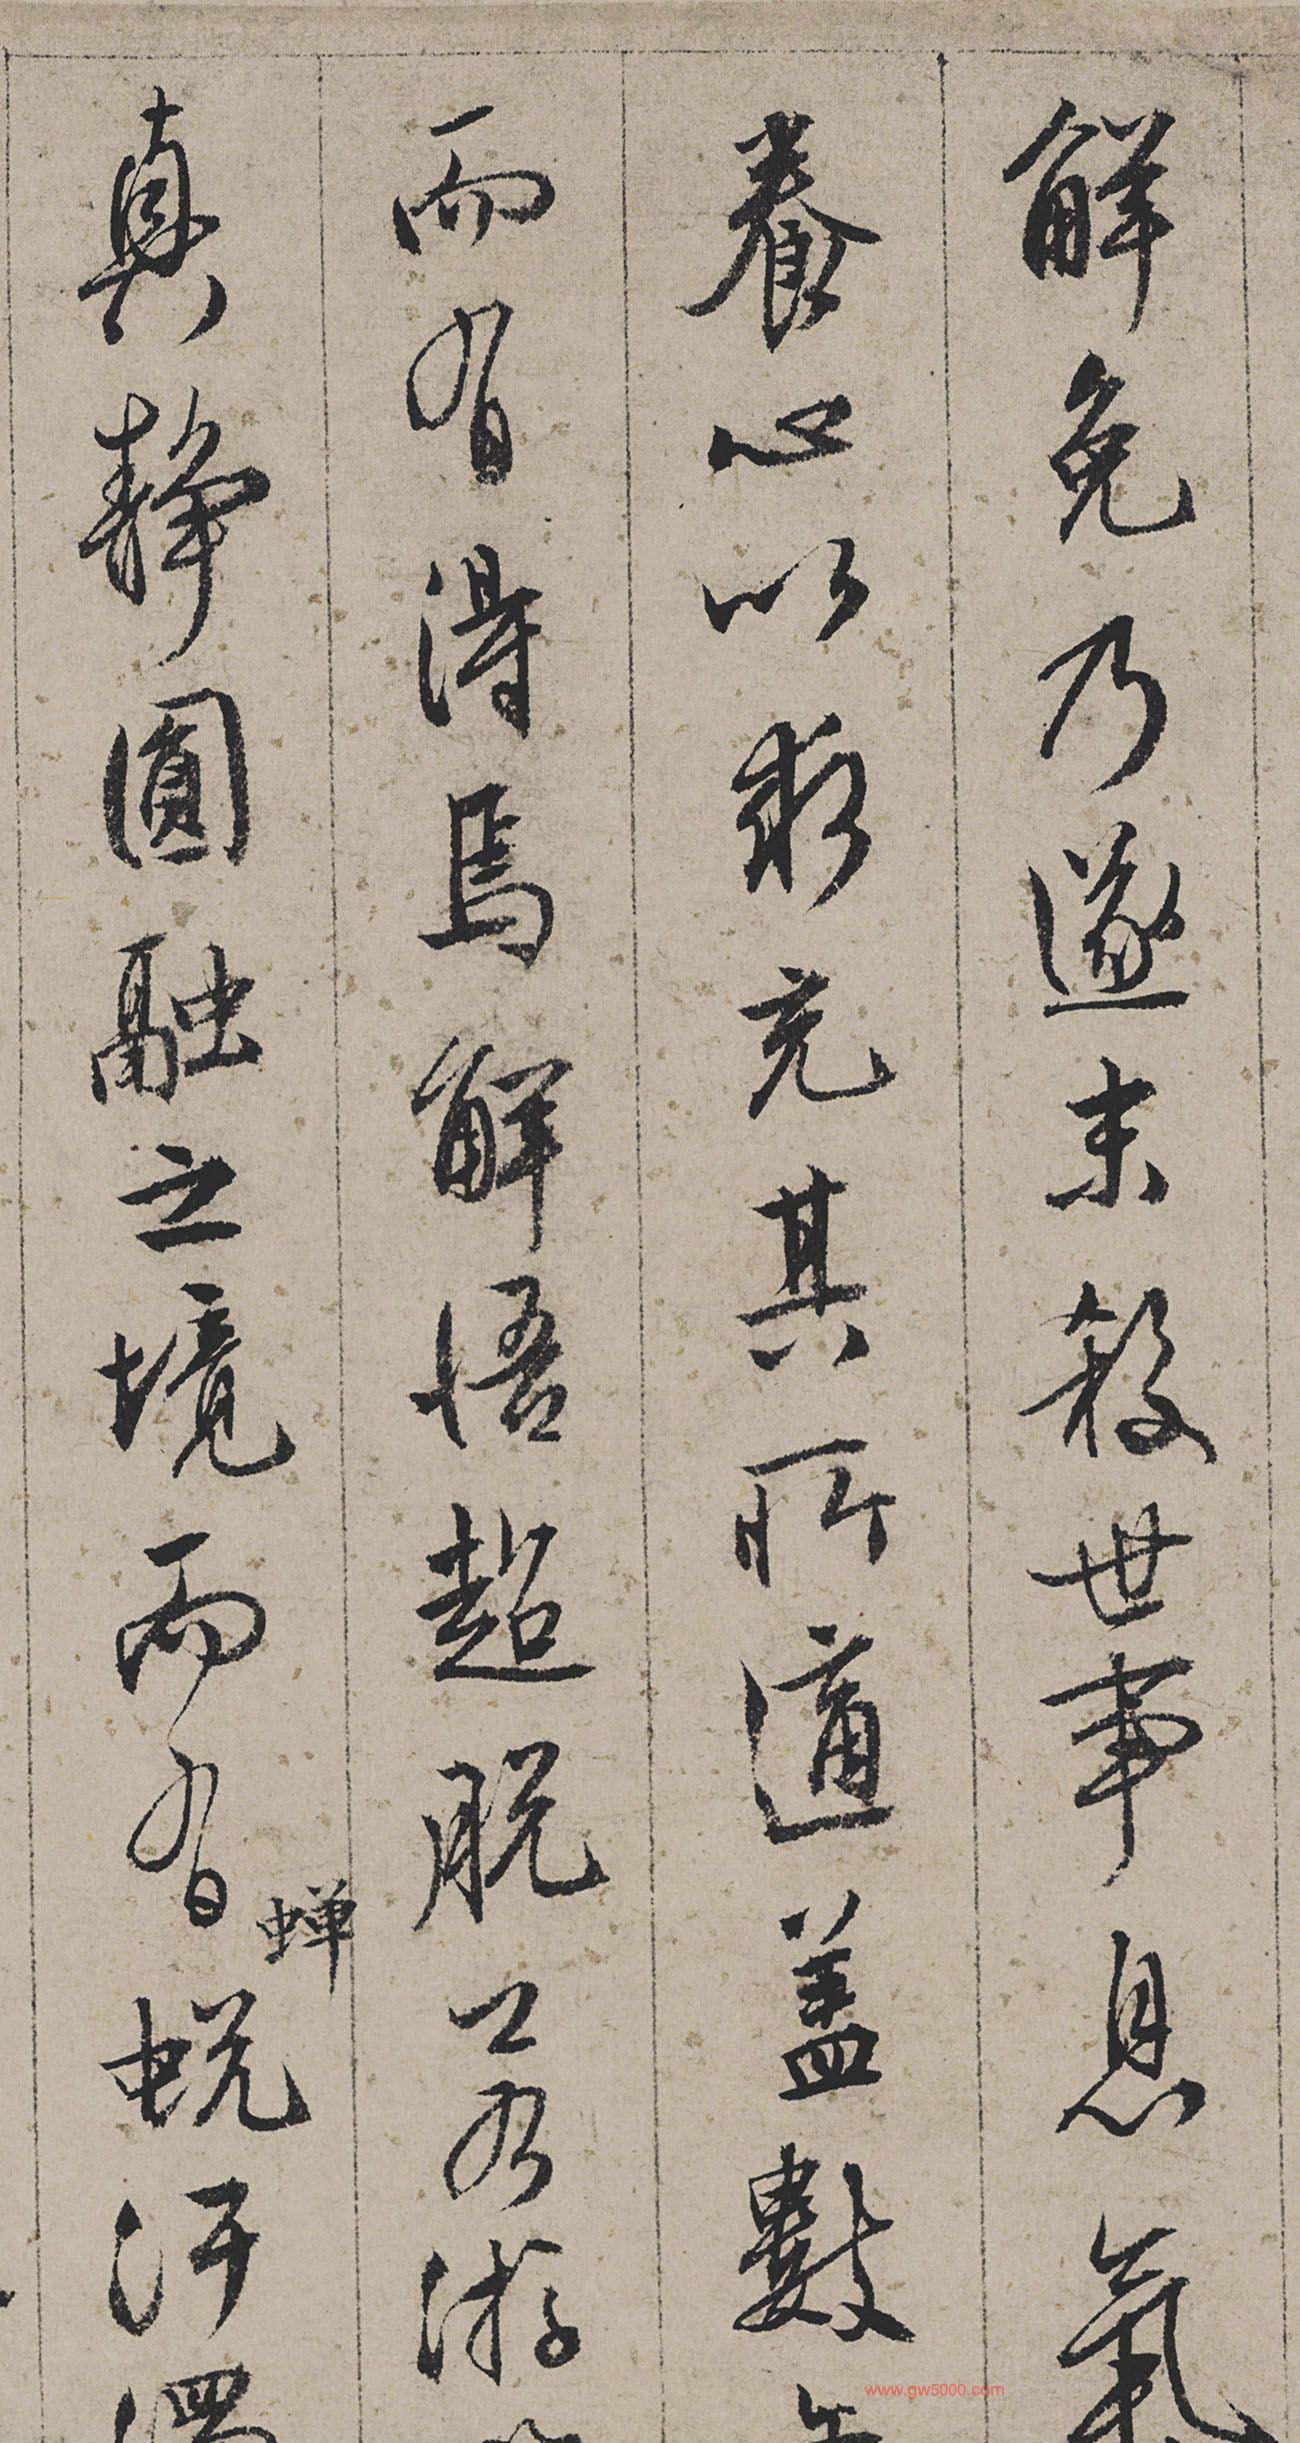 解免乃遂来殺世事息氣
養心以求充其所適蓋數年
而有得焉解悟超脱已而游
真静圓融之境而有蟬蜕汙濁
www.gw5000.com